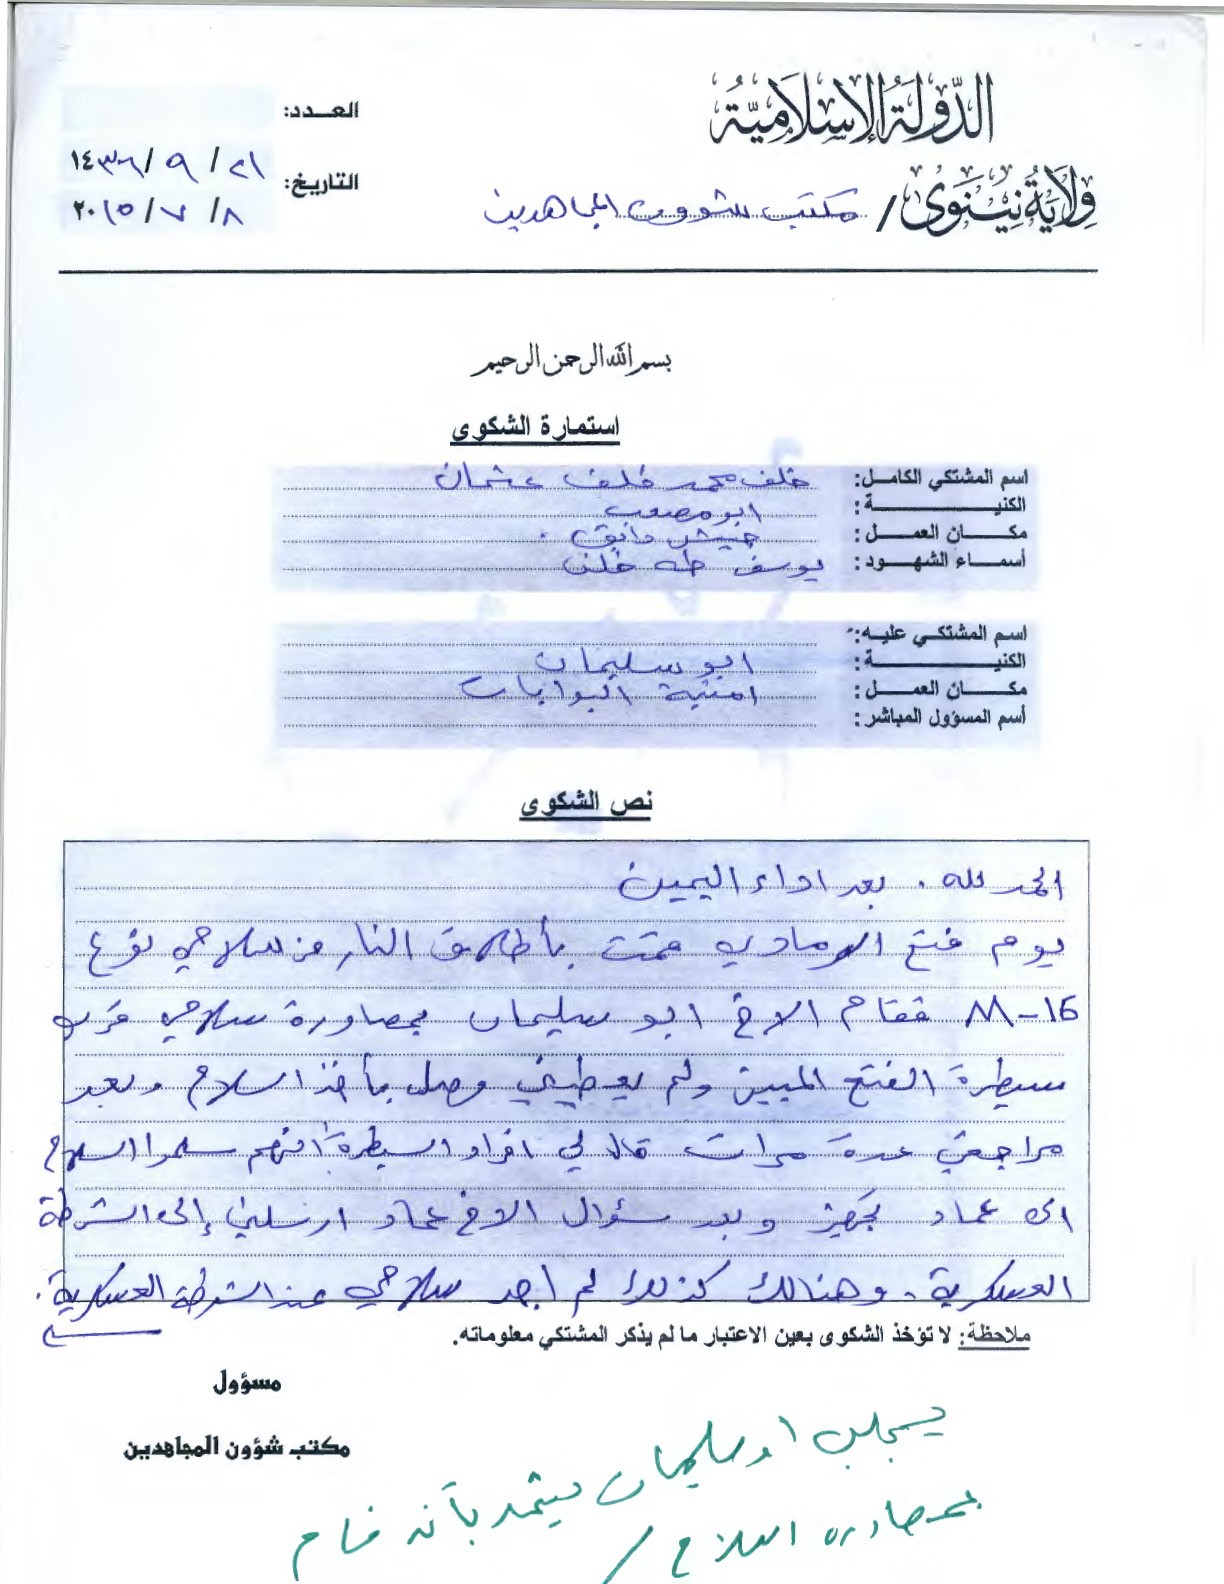 الدولة الإسلامية
ولاية نينوى / مكتب شؤون المجاهدين
العدد:
التاريخ: ٢١ / ٩ / ١٤٣٦
٨ / ٧ / ٢٠١٥
بسم الله الرحمن الرحيم
استمارة الشكوى
اسم المشتكي الكامل: خلف محمد خلف عثمان
الكنية: ابو مصعب
مكان العمل: جيش دابق.
أسماء الشهود: يوسف طه خلف
اسم المشتكي عليه:
الكنية: ابو سليمان
مكان العمل: امنية البوابات
أسم المسؤول المباشر:
نص الشكوى
الحمد لله . بعد اداء اليمين
يوم فتح الرمادي قمت بأطلاق النار من سلاحي نوع
M-16 فقام الاخ ابو سليمان بمصادرة سلاحي قرب
سيطرة الفتح المبين ولم يعطيني وصل بأخذ السلاح وبعد
مراجعتي عدة مرات قال لي افراد السيطرة انهم سلموا السلاح
الى عماد تجهيز وبعد سؤال الاخ عماد ارسلني إلى الشرطة
العسكرية. وهنالك كذلك لم اجد سلاحي عند الشرطة العسكرية.
ملاحظة: لا تؤخذ الشكوى بعين الاعتبار ما لم يذكر المشتكي معلوماته.
مسؤول
مكتب شؤون المجاهدين
ابو سليمان بأنه قام
بمصادره السلاح /